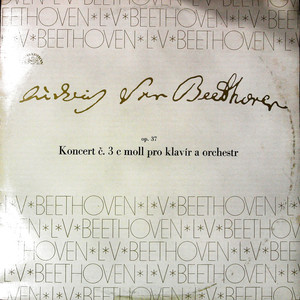 BEETHOVEN*L*V*BEETHOVEN
V*BEETHOVEN*
BEETHOVEN*L*
Ludwig van Beethoven
op. 37
Koncert č. 3 c moll pro klavír a orchestr
*L*V*BEETHOVEN*L*V*
BEETHOVEN*L*V*BEETHOVEN
OVEN*L*V*BEETHOVEN*L*V
*V*BEETHOVEN*L*V*BEETH
THOVEN*L*V*BEETHOVEN*
*L*V*BEETHOVEN*L*V*BE